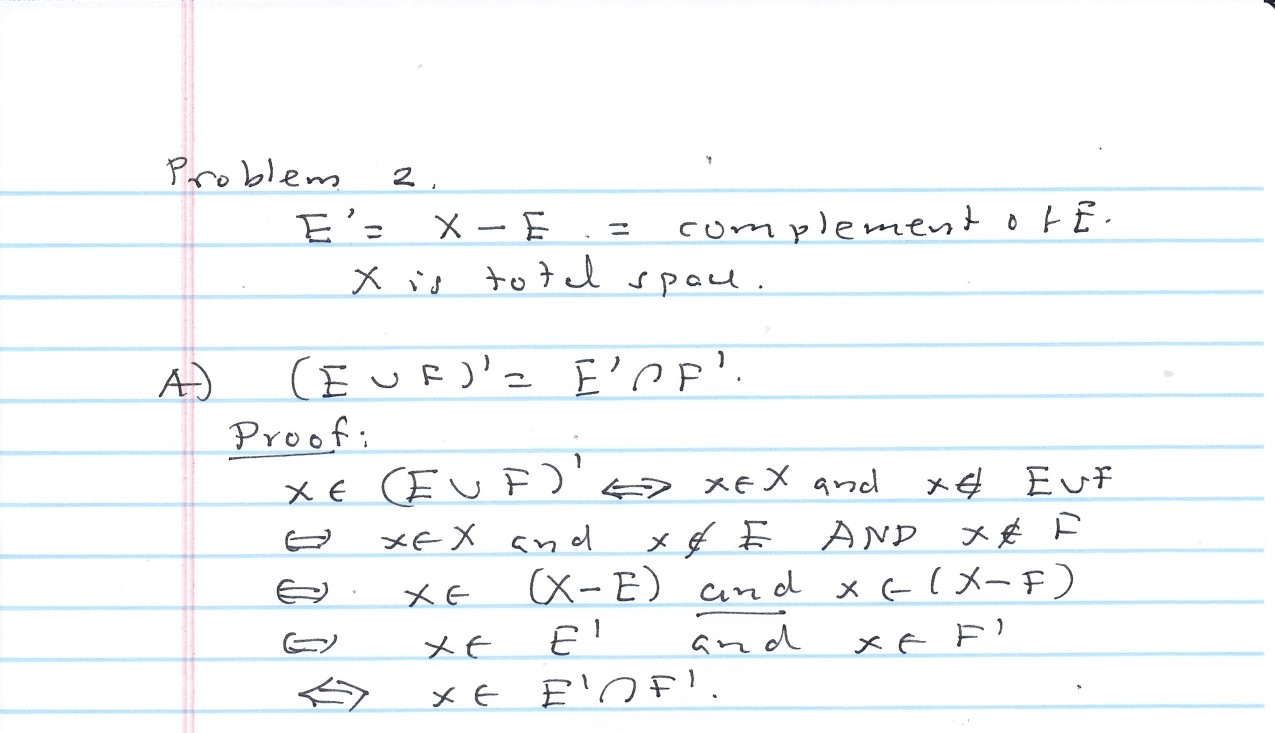 Problem 2.
E' = X - E . = complement of E.
X is total space.
A) (E ∪ F)' = E' ∩ F'.
Proof:
x ∈ (E ∪ F)' ⟺ x ∈ X and x ∉ E ∪ F
⟺ x ∈ X and x ∉ E AND x ∉ F
⟺ x ∈ (X - E) and x ∈ (X - F)
⟺ x ∈ E' and x ∈ F'
⟺ x ∈ E' ∩ F'.